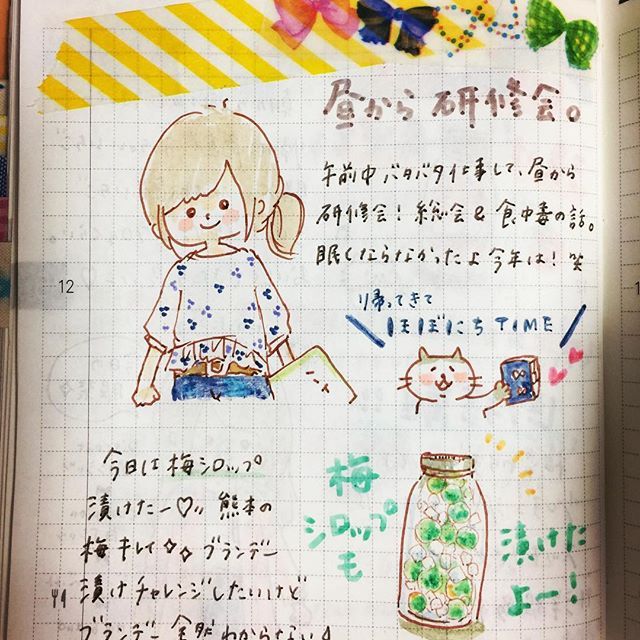 昼から 研修会。
午前中バタバタ仕事して、昼から
研修会！総会&食中毒の話。
眠くならなかったよ今年は！笑
12
帰ってきて
\ ほぼにち TIME /
今日は梅シロップ
漬けたー♡〃 熊本の
梅キレイ✧✧ ブランデー
漬けチャレンジしたいけど
ブランデー全然わからない!
梅
シロップ
も
漬けた
よー！